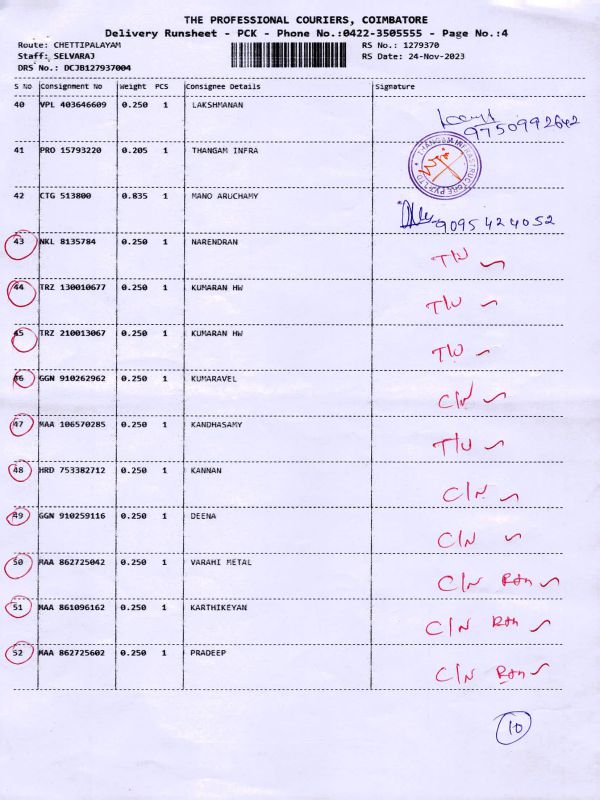 THE PROFESSIONAL COURIERS, COIMBATORE
Delivery Runsheet - PCK - Phone No.:0422-3505555 - Page No.:4
Route: CHETTIPALAYAM RS No.: 1279370
Staff: SELVARAJ RS Date: 24-Nov-2023
DRS No.: DCJB127937004
S No Consignment No Weight PCS Consignee Details Signature
40 VPL 403646609 0.250 1 LAKSHMANAN
9750992642
41 PRO 15793220 0.205 1 THANGAM INFRA
THANGAM INFRASTRUCTURE PVT LTD
42 CTG 513800 0.835 1 MANO ARUCHAMY
9095424052
43 NKL 8135784 0.250 1 NARENDRAN
44 TRZ 130010677 0.250 1 KUMARAN HW
45 TRZ 210013067 0.250 1 KUMARAN HW
46 GGN 910262962 0.250 1 KUMARAVEL
C/N
47 MAA 106570285 0.250 1 KANDHASAMY
48 HRD 753382712 0.250 1 KANNAN
C/N
49 GGN 910259116 0.250 1 DEENA
C/N
50 MAA 862725042 0.250 1 VARAHI METAL
C/N
51 MAA 861096162 0.250 1 KARTHIKEYAN
C/N
52 MAA 862725602 0.250 1 PRADEEP
C/N
10